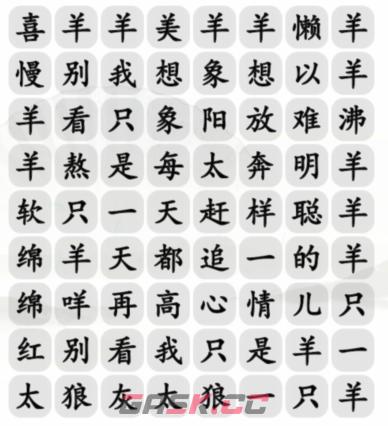 喜羊羊美羊羊懒羊
慢别我想象想以羊
羊看只象阳放难沸
羊熬是每太奔明羊
软只一天赶样聪羊
绵羊天都追一的羊
绵咩再高心情儿只
红别看我只是羊一
太狼灰太狼一只羊
GASK.CC